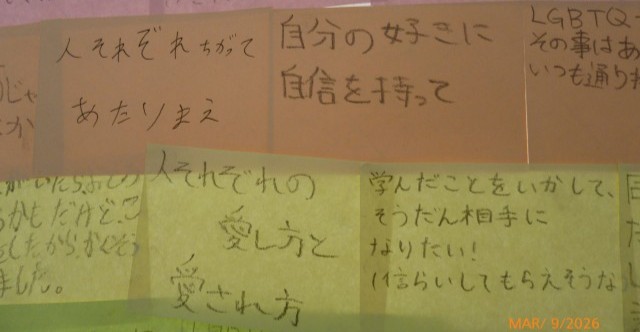 人それぞれちがって
あたりまえ
自分の好きに
自信を持って
LGBTQ
その事はあ
いつも通り
じゃ
か
ました。
人それぞれの
愛し方と
愛され方
学んだことをいかして、
そうだん相手に
なりたい!
(信らいしてもらえそうな
MAR/ 9/2026